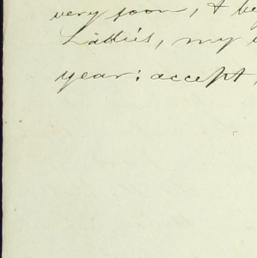 very soon, & be
Ladies, my
year: accept,